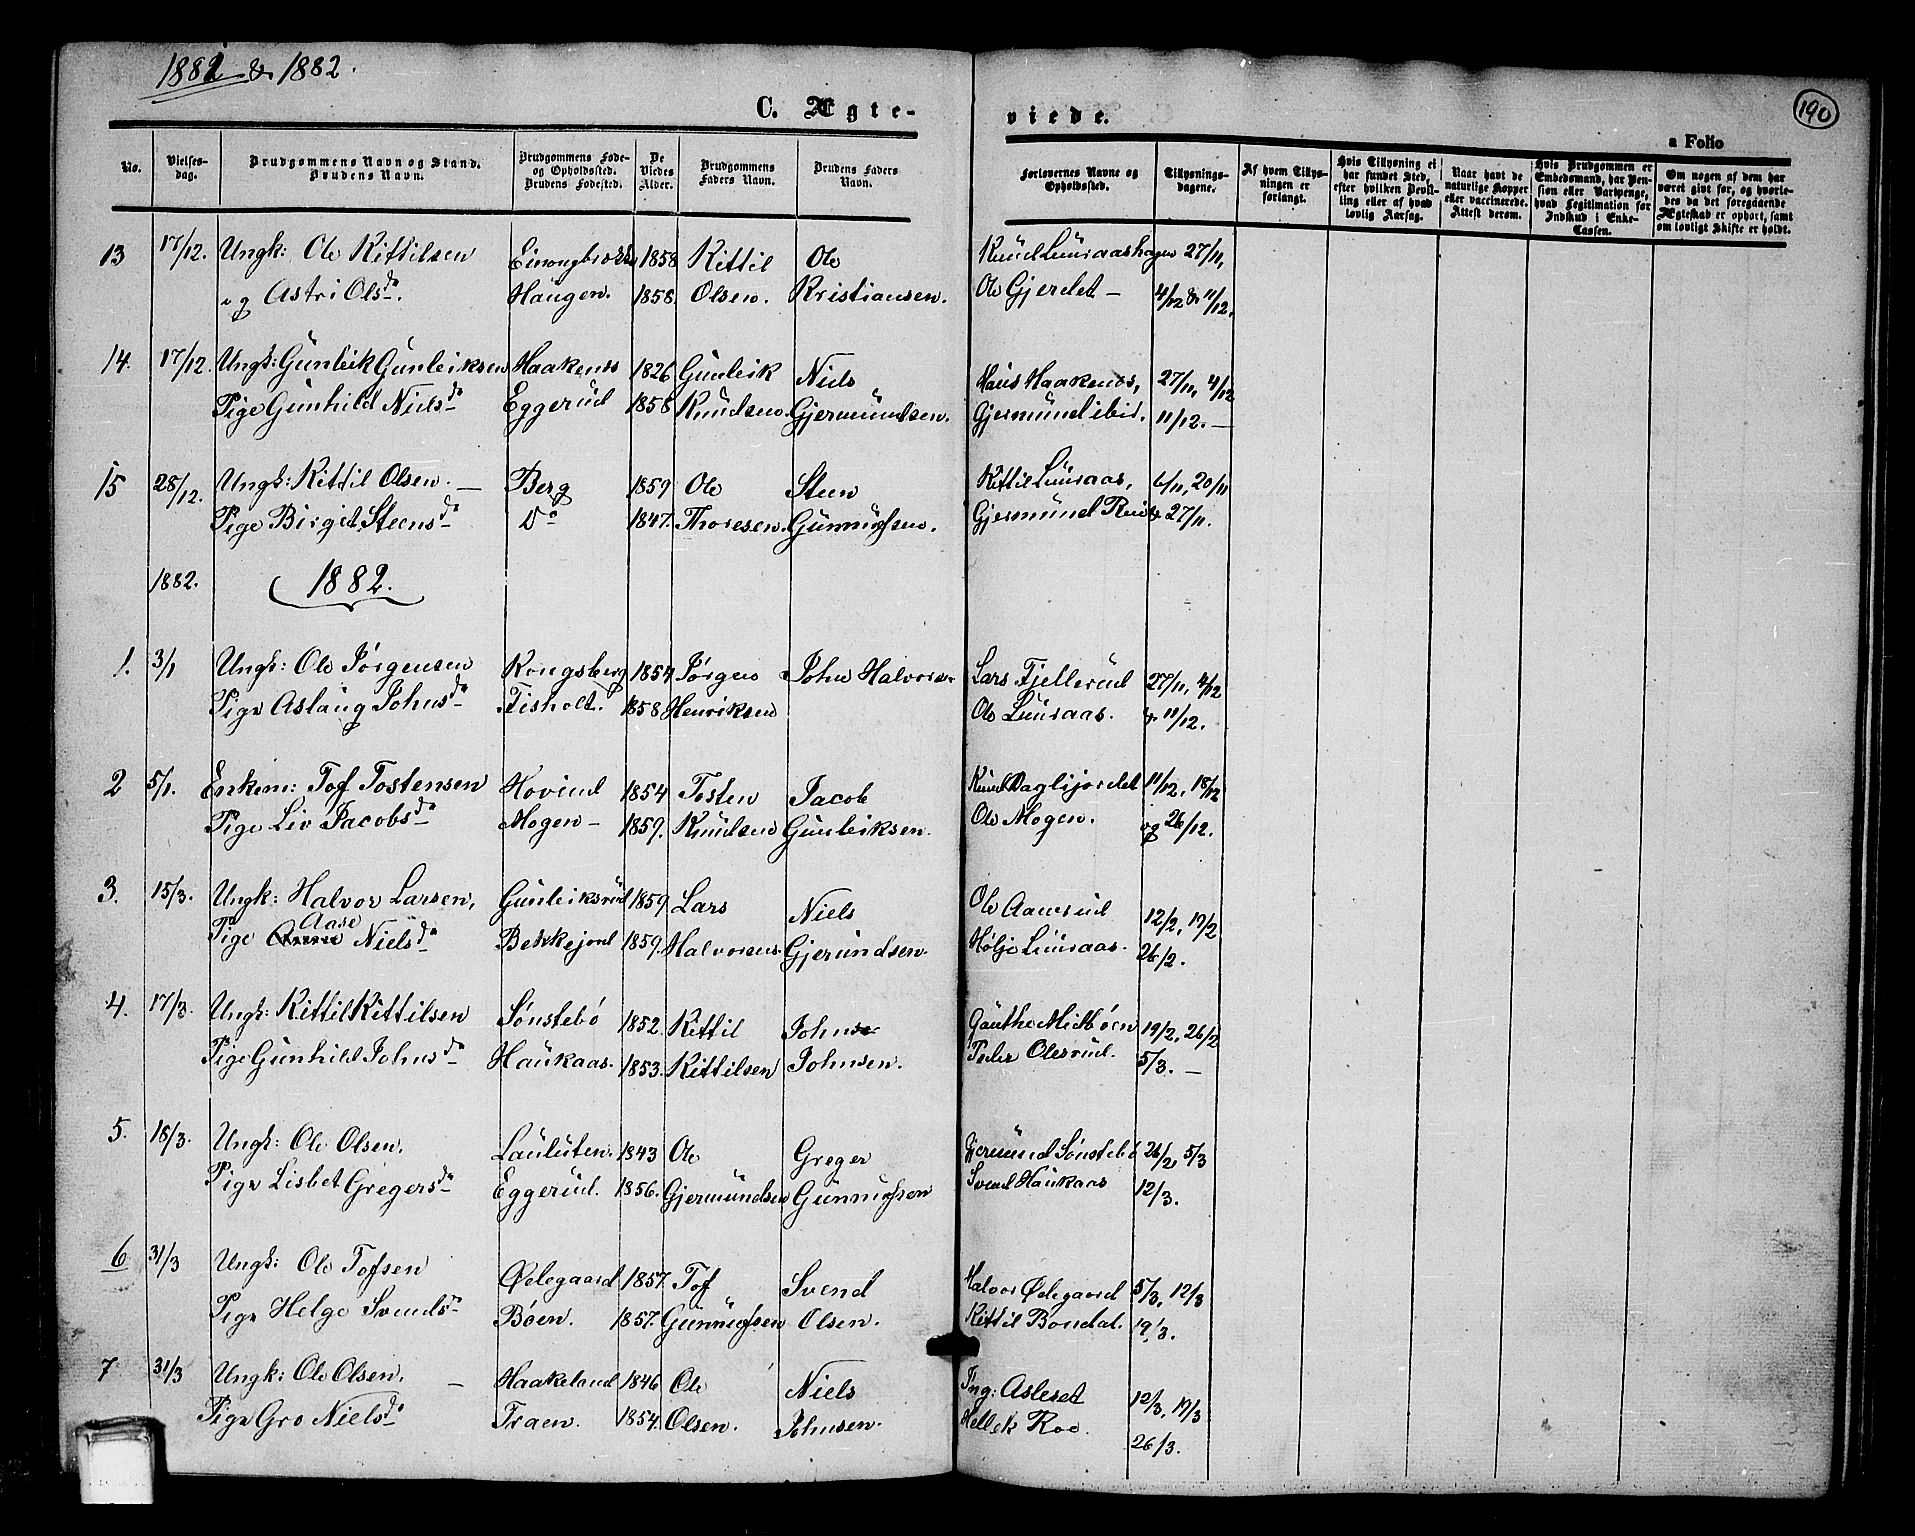 1881 & 1882.
190
C. Ægte-
viede.
a Folio
No.
Vielses-
dag.
Brudgommens Navn og Stand.
Brudens Navn.
Brudgommens Føde-
og Opholdssted.
Brudens Fødested.
De
Viedes
Alder.
Brudgommens
Faders Navn.
Brudens Faders
Navn.
Forlovernes Navne og
Opholdssted.
Tillysnings-
dagene.
Af hvem Tillys-
ningen er
forlangt.
Hvis Tillysning ei
har fundet Sted,
efter hvilken Bevil-
ling eller af hvad
lovlig Aarsag.
Naar havt de
naturlige Kopper
eller vaccinerede.
Attest derom.
Hvis Brudgommen er
Embedsmand, har Pen-
sion eller Vartpenge,
hvad Legitimation for
Indskud i Enke-
Cassen.
Om nogen af dem har
været givt før, og hvorle-
des da det foregaaende
Ægteskab er ophørt, samt
om lovligt Skifte er holdt.
13 17/12. Ungk: Ole Kittilsen 1858 Kittil Ole Knud Luuraashagen 27/11,
og Astri Olsd. Haugen. 1858. Olsen. Kristiansen. Ole Gjerdet — 4/12 & 11/12.
14. 17/12. Ungk: Gunleik Gunleiksen Haakenes 1826 Gunleik Niels Hans Haakenes, 27/11, 4/12
Pige Gunhild Nielsd Eggerud 1858 Knudsen. Gjermundsen. Gjermund ibid. 11/12. —
15 28/12. Ungk: Kittil Olsen. — Berg 1859 Ole Steen Kittil Luuraas, 6/11, 20/11
Pige Birgit Steensd Do 1847. Thoresen. Gunnufsen. Gjermund & 27/11.
1882. 1882.
1. 3/1 Ungk: Ole Jørgensen Kongsberg 1854 Jørgen John Halvorsen Lars Fjellerud 27/11, 4/12
Pige Aslaug Johnsd Fisholt. 1858 Henriksen Ole Luuraas. & 11/12.
2 5/1. Enkem: Tof Tostensen Hovind 1854 Tosten Jacob Knud Dagligjordet 11/12, 18/12
Pige Liv Jacobsd Mogen — 1859. Knudsen Gunleiksen. Ole Mogen. og 26/12.
3. 15/3. Ungk: Halvor Larsen, Gunleiksrud 1859 Lars Niels Ole Aamrud 12/2, 19/2
Pige Aase Nielsd Bekkejord 1859. Halvorsen. Gjerundsen. Hølje Luuraas. 26/2.
4. 17/3. Ungk: Kittil Kittilsen Sønstebø 1852. Kittil John Gauthe Midbøen 19/2, 26/2
Pige Gunhild Johnsd Haukaas. 1853. Kittilsen Johnsen. Peder Olesrud. 5/3. —
5. 18/3. Ungk: Ole Olsen. Lauluten. 1843 Ole Greger Gjermund Sønstebø 26/2, 5/3
Pige Lisbet Gregersd Eggerud. 1856. Gjermundsen Gunnufsen Svend Haukaas 12/3.
6 31/3 Ungk: Ole Tofsen Ødegaard 1857. Tof Svend Halvor Ødegaard 5/3, 12/3
Pige Helge Svendsd Bøen. 1857. Gunnufsen Olsen. Kittil Bondal. 19/3.
7 31/3 Ungk: Ole Olsen. — Haakeland 1846 Ole Niels Ing: Asleset 12/3, 19/3
Pige Gro Nielsd Traen. 1854. Olsen. Johnsen. Hellek Roe. 26/3.